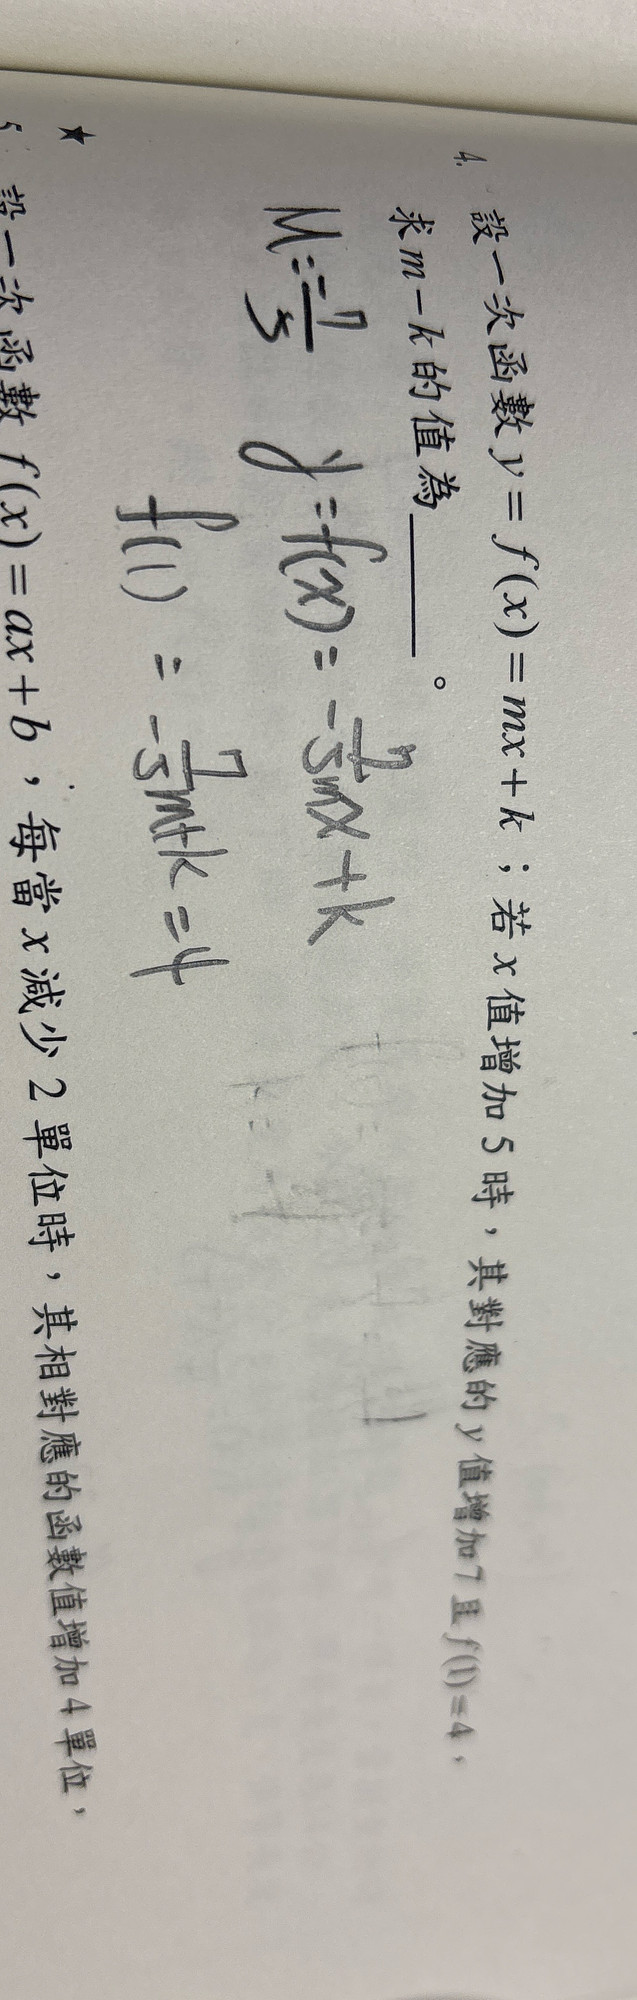 4. 設一次函數 y = f(x) = mx + k；若 x 值增加 5 時，其對應的 y 值增加7 且 f(1) = 4，
求 m − k 的值為______。
M = -7/5 y = f(x) = -7/5mx + k
f(1) = -7/5m+k = 4
★
5. 設一次函數 f(x) = ax + b，每當 x 減少 2 單位時，其相對應的函數值增加 4 單位，